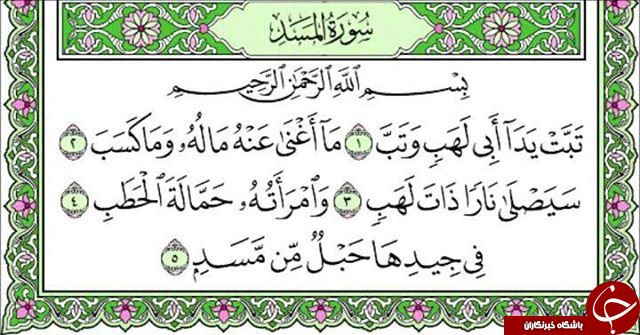 سُورَةُ المَسَدِ
بِسْمِ ٱللَّهِ ٱلرَّحْمَٰنِ ٱلرَّحِيمِ
تَبَّتْ يَدَآ أَبِى لَهَبٍ وَتَبَّ ١ مَآ أَغْنَىٰ عَنْهُ مَالُهُۥ وَمَا كَسَبَ ٢
سَيَصْلَىٰ نَارًا ذَاتَ لَهَبٍ ٣ وَٱمْرَأَتُهُۥ حَمَّالَةَ ٱلْحَطَبِ ٤
فِى جِيدِهَا حَبْلٌ مِّن مَّسَدٍۭ ٥
باشگاه خبرنگاران